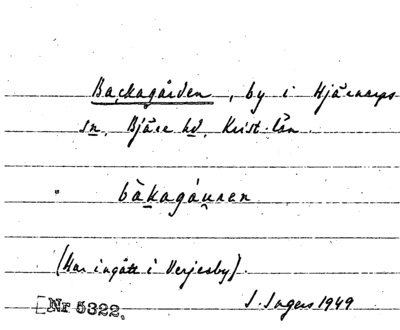 Backagården, by i Hjärnarps
sn, Bjäre hd, Krist. län.
båkagáu̯ran
(Har ingått i Verjesby).
[Nr 5322.
I. Ingers 1949